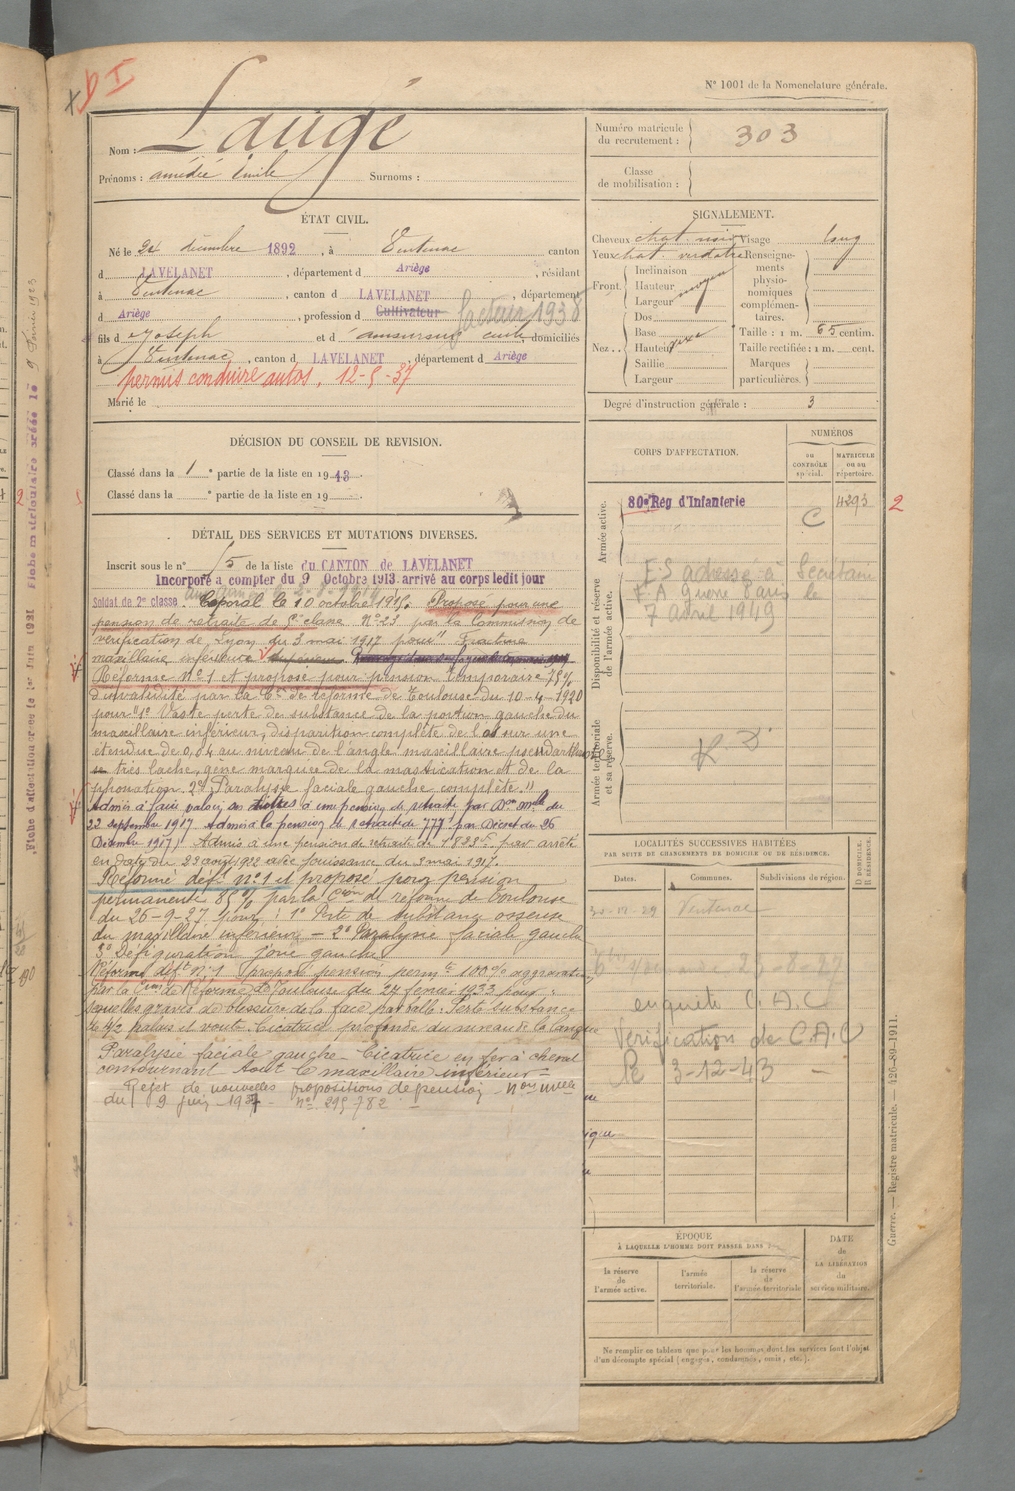 D I
N° 1001 de la Nomenclature générale.
Nom : Laugé
Prénoms : amédée émile Surnoms :
Numéro matricule du recrutement : 303
Classe de mobilisation :
ÉTAT CIVIL.
Né le 24 décembre 1892, à Ventenac canton
d LAVELANET, département d Ariège, résidant
à Ventenac, canton d LAVELANET, département
d Ariège, profession d Cultivateur facteur 1938
fils d Joseph et d' domiciliés
à Ventenac, canton d LAVELANET, département d Ariège
permis conduire autos, 12-5-37
Marié le
SIGNALEMENT.
Cheveux chat. noir Visage long
Yeux chat. verdatre Renseignements physionomiques complémentaires.
Front. Inclinaison
Hauteur moyen
Largeur
Nez.. Dos
Base
Hauteur
Saillie
Largeur
Taille : 1 m. 65 centim.
Taille rectifiée : 1 m. cent.
Marques particulières.
Degré d'instruction générale : 3
DÉCISION DU CONSEIL DE REVISION.
Classé dans la 1e partie de la liste en 1913.
Classé dans la e partie de la liste en 19 .
CORPS D'AFFECTATION.
NUMÉROS
au CONTRÔLE spécial.
MATRICULE ou au répertoire.
Armée active.
80e Rég d'Infanterie
C
4293
2
Disponibilité et réserve de l'armée active.
E.S adressé à Secrétaire
F.A Guerre Paris le
7 avril 1949
Armée territoriale et sa réserve.
DÉTAIL DES SERVICES ET MUTATIONS DIVERSES.
Inscrit sous le n° 15 de la liste du CANTON de LAVELANET
Incorporé à compter du 9 Octobre 1913. arrivé au corps ledit jour
Soldat de 2e classe. Caporal le 10 octobre 1915. Proposé pour une
pension de retraite de 5e classe N° 23 par la Commission de
vérification de Lyon du 3 mai 1917 pour " Fracture
maxillaire inférieure
Réforme N° 1 et proposé pour pension temporaire 75%
d'invalidité par la Con de réforme de Toulouse du 10-4-1920
pour "1° Vaste perte de substance de la portion gauche du
maxillaire inférieur, disparition complète de l'os sur une
étendue de 0,04 au niveau de l'angle maxillaire pseudarthrose
très lache, gêne marquée de la mastication et de la
phonation. 2° Paralysie faciale gauche complète."
Admis à faire valoir ses titres à une pension de retraite par Don Mlle du
22 septembre 1917 Admis à la pension de retraite de 777f par Décret du 26
Décembre 1917. Admis à une pension de retraite de 1823f par arrêté
en date du 23 août 1922 avec jouissance du 3 mai 1917.
Réformé déft n° 1 et proposé pour pension
permanente 85% par la Cion de réforme de Toulouse
du 26-9-27 pour : 1° Perte de substance osseuse
du maxillaire inférieur - 2° Paralysie faciale gauche
3° Défiguration joue gauche
Réformé déft n° 1 proposé pension permte 100% aggravation
par la Cion de Réforme de Toulouse du 24 février 1933 pour :
séquelles graves de blessure de la face par balle. Perte substance
de 1/2 palais et voute. Cicatrice profonde du niveau de la langue
Paralysie faciale gauche - Cicatrice en fer à cheval
contournant tout le maxillaire inférieur =
Rejet de nouvelles propositions de pension
du 9 juin 1937 - n° 295782 -
LOCALITÉS SUCCESSIVES HABITÉES
PAR SUITE DE CHANGEMENTS DE DOMICILE OU DE RÉSIDENCE.
Dates.
Communes.
Subdivisions de région.
D DOMICILE.
R RÉSIDENCE.
Ventenac
23-8-27
enquête C.A.C
Vérification de C.A.C
le 3-12-43
ÉPOQUE
À LAQUELLE L'HOMME DOIT PASSER DANS
la réserve de l'armée active.
l'armée territoriale.
la réserve de l'armée territoriale
DATE de LA LIBÉRATION du service militaire.
Ne remplir ce tableau que pour les hommes dont les services font l'objet
d'un décompte spécial (engagés, condamnés, omis, etc.).
Guerre. — Registre matricule. — 426-89-1911.